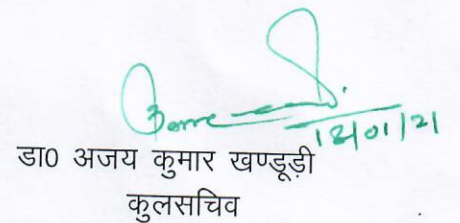 18/01/21
डा0 अजय कुमार खण्डूड़ी
कुलसचिव